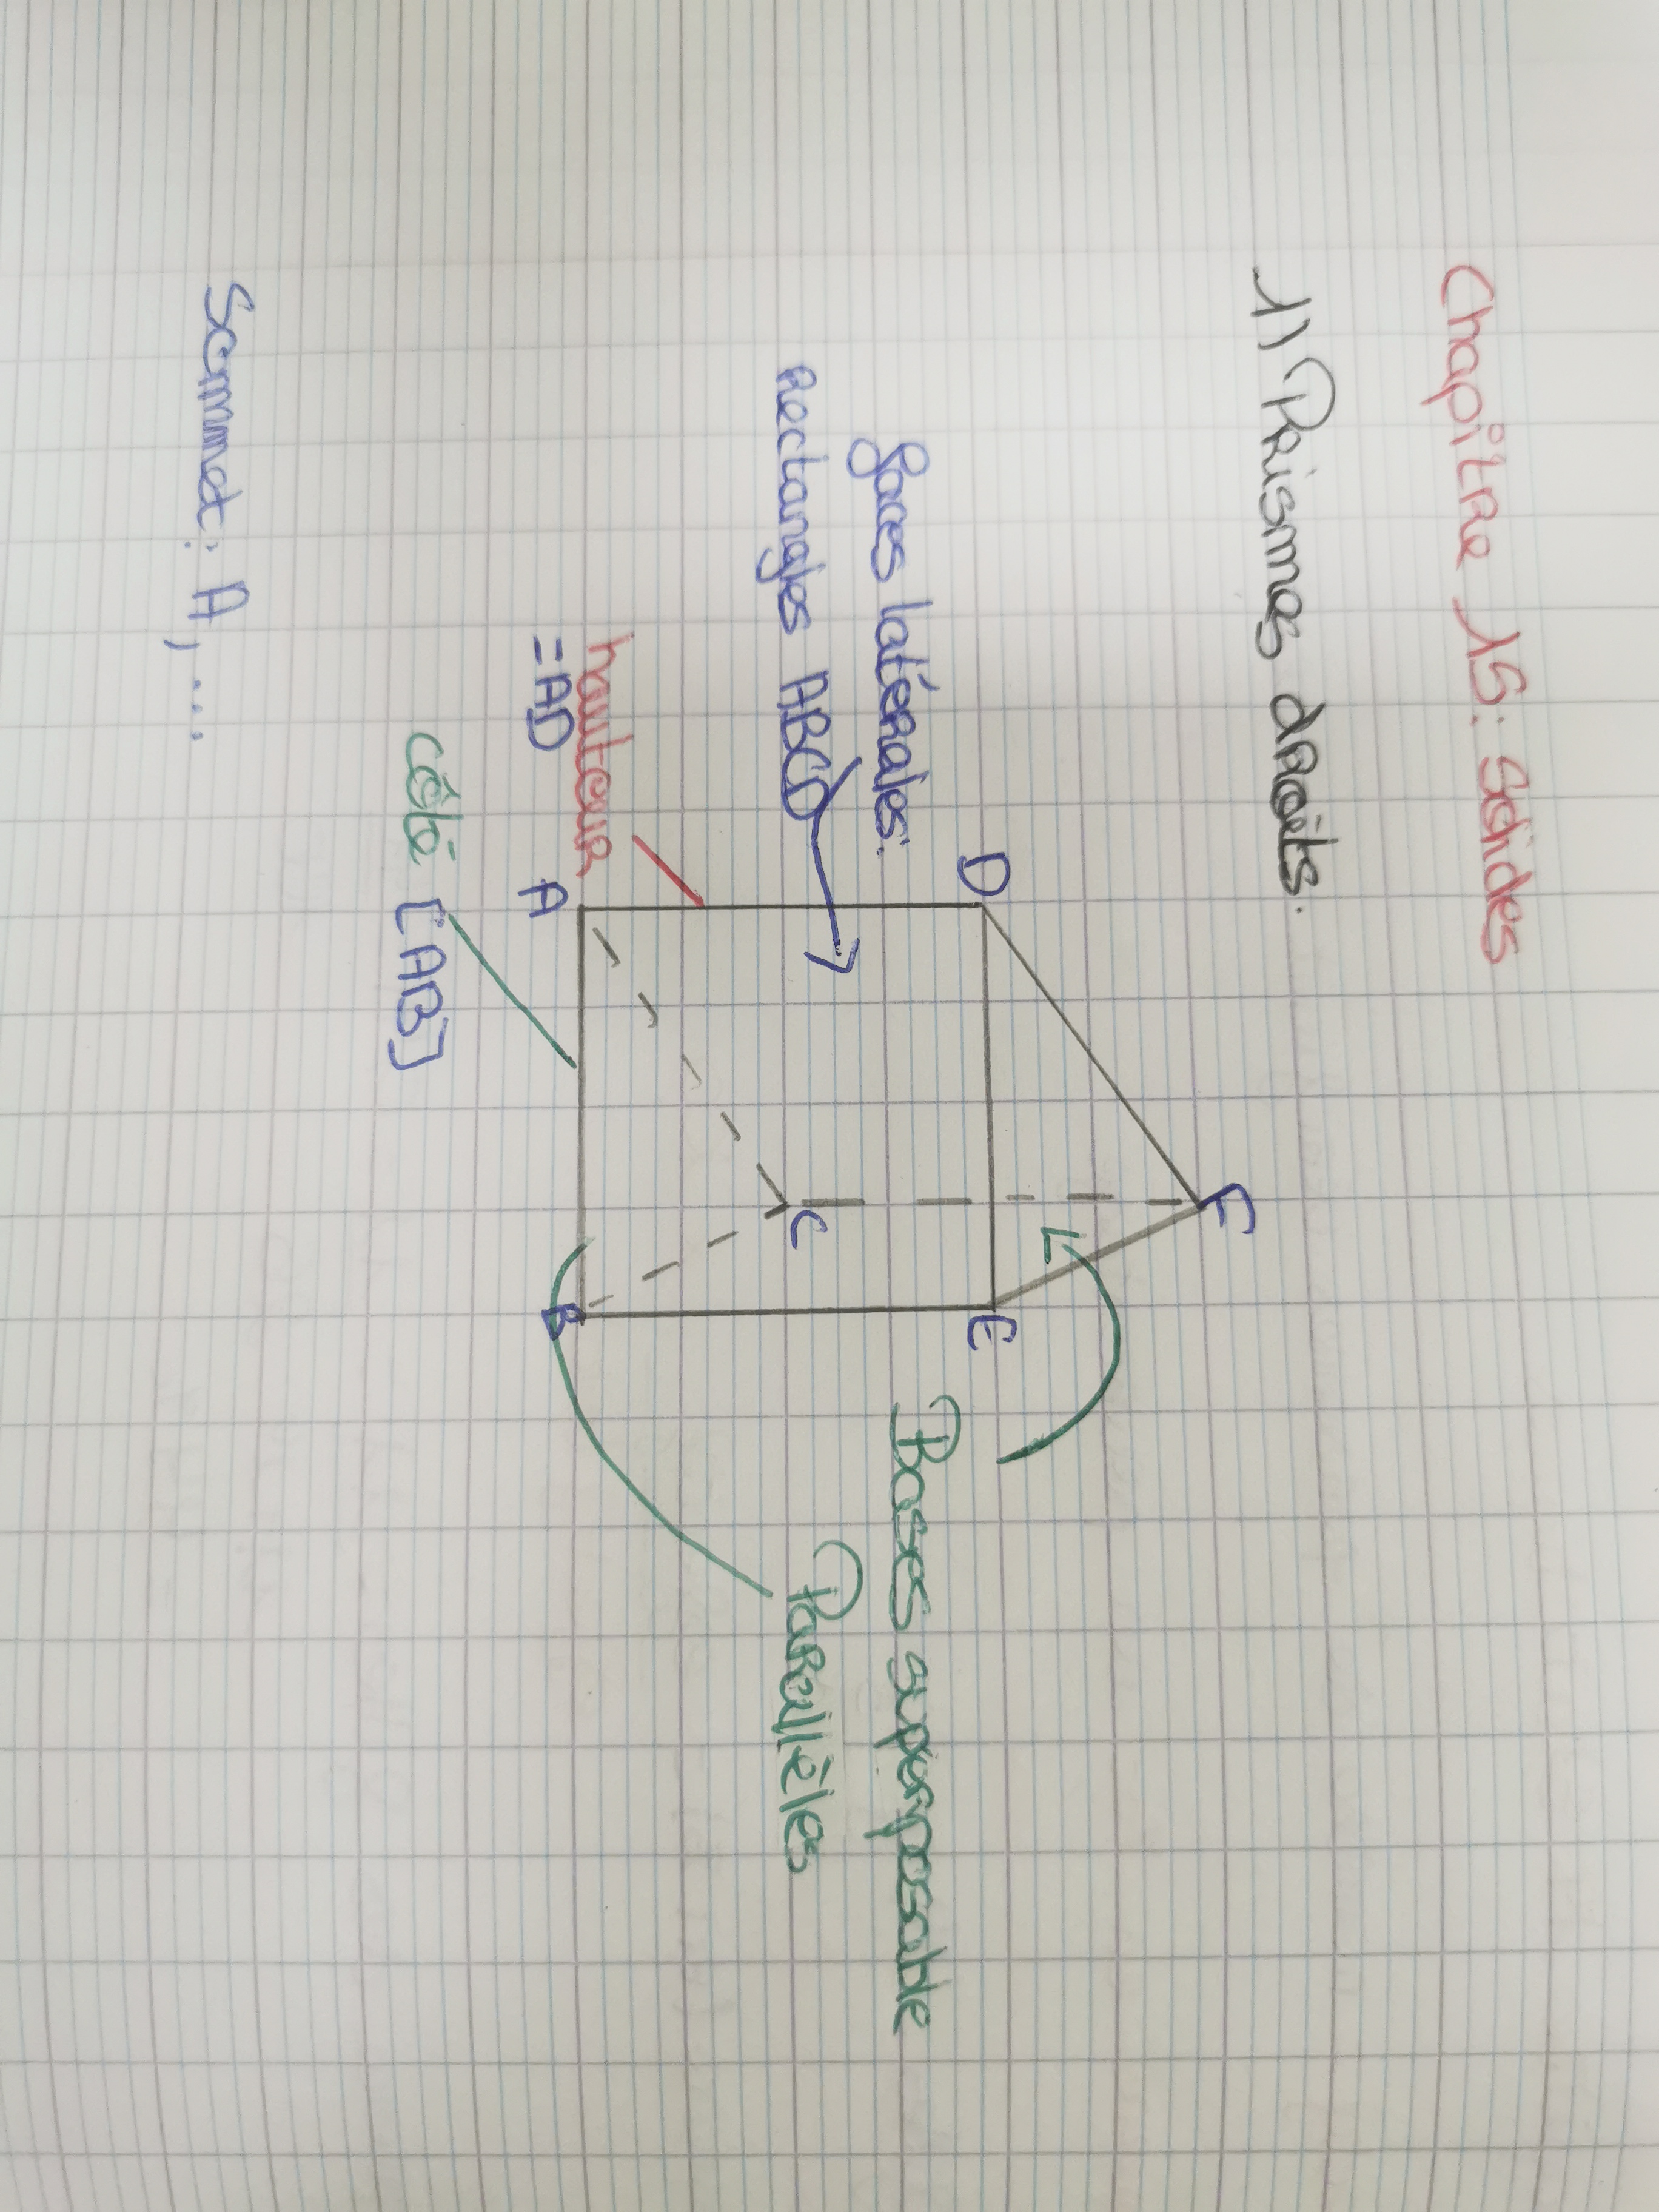 Chapitre 15: Solides
1) Prismes droits.
F
D
E
faces latérales:
Bases superposable
rectangles ABCD
C
Parallèles
hauteur
=AD
A
B
côté [AB]
Sommet: A, ...